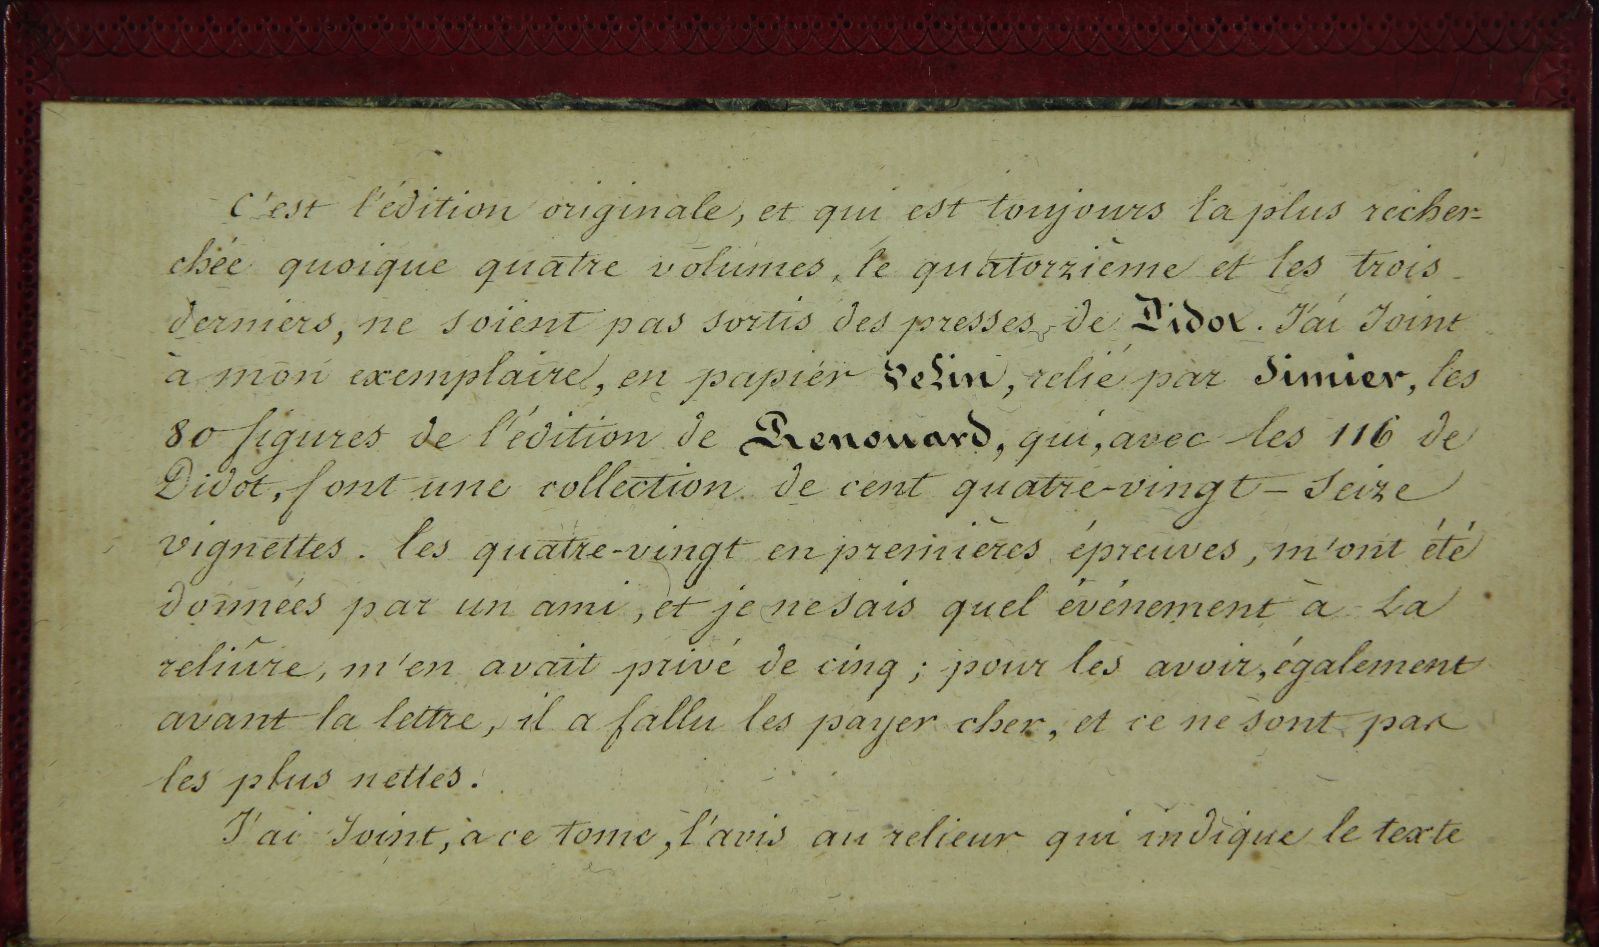 C'est l'édition originale, et qui est toujours la plus recher-
chée quoique quatre volumes, le quatorzième et les trois
derniers, ne soient pas sortis des presses de Didot. J'ai Joint
à mon exemplaire, en papier Velin, relié par Simier, les
80 figures de l'édition de Renouard, qui, avec les 116 de
Didot, font une collection de cent quatre-vingt-Seize
vignettes. les quatre-vingt en premières épreuves, m'ont été
données par un ami, et je ne sais quel événement à La
reliûre, m'en avait privé de cinq; pour les avoir, également
avant la lettre, il a fallu les payer cher, et ce ne sont pas
les plus nettes.
J'ai Joint, à ce tome, l'avis au relieur qui indique le texte